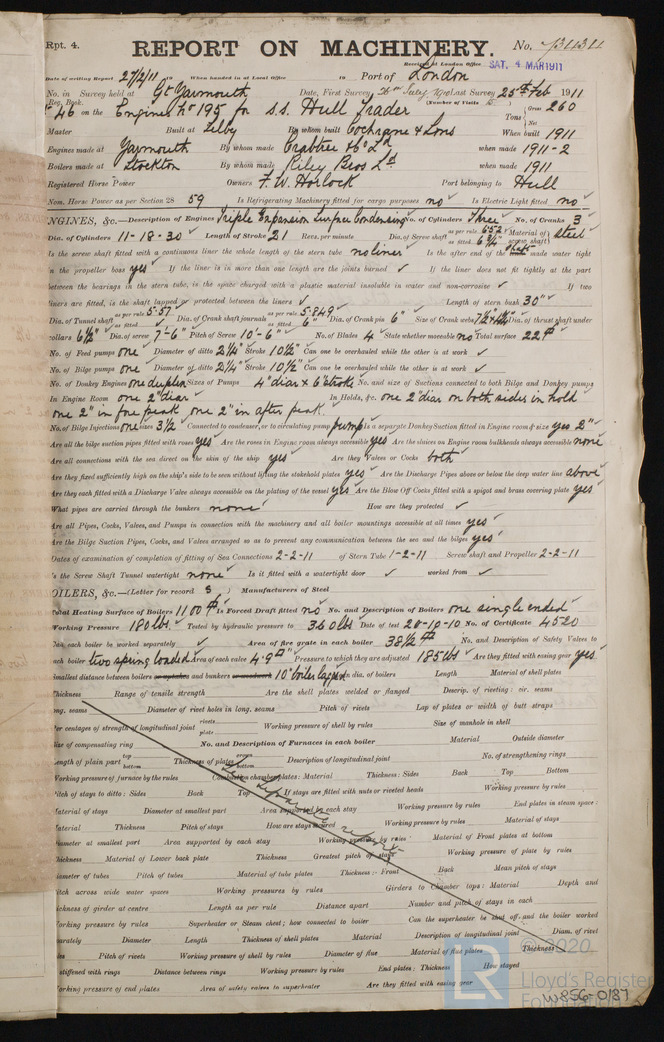 Rpt. 4.
REPORT ON MACHINERY.
No.
Received at London Office SAT. 4 MAR 1911
Date of writing Report 27/2/11 When handed in at Local Office 10 Port of London
No. in Survey held at Gt Yarmouth Date, First Survey Last Survey 25th Feb 1911
Reg. Book. (Number of Visits
46 on the Engines No 195 for s.s. Hull Trader Tons Gross 260 Net
Master Built at Selby By whom built Cochrane & Sons When built 1911
Engines made at Yarmouth By whom made Crabtree & Co Ld when made 1911-2
Boilers made at Stockton By whom made Riley Bros Ld when made 1911
Registered Horse Power Owners F. W. Horlock Port belonging to Hull
Nom. Horse Power as per Section 28 59 Is Refrigerating Machinery fitted for cargo purposes no Is Electric Light fitted no
ENGINES, &c.—Description of Engines Triple Expansion Surface Condensing No. of Cylinders Three No. of Cranks 3
Dia. of Cylinders 11-18-30 Length of Stroke 21 Revs. per minute Dia. of Screw shaft as per rule 6.52 as fitted 6 3/4" Material of screw shaft steel
Is the screw shaft fitted with a continuous liner the whole length of the stern tube no liner Is the after end of the made water tight
in the propeller boss yes If the liner is in more than one length are the joints burned ✓ If the liner does not fit tightly at the part
between the bearings in the stern tube, is the space charged with a plastic material insoluble in water and non-corrosive ✓ If two
liners are fitted, is the shaft lapped or protected between the liners ✓ Length of stern bush 30"
Dia. of Tunnel shaft as per rule 5.57 as fitted ✓ Dia. of Crank shaft journals as per rule 5.849 as fitted 6" Dia. of Crank pin 6" Size of Crank webs Dia. of thrust shaft under
collars 6 1/2" Dia. of screw 7'-6" Pitch of Screw 10'-6" No. of Blades 4 State whether moveable no Total surface 22
No. of Feed pumps one Diameter of ditto 2 1/4" Stroke 10 1/2" Can one be overhauled while the other is at work ✓
No. of Bilge pumps one Diameter of ditto 2 1/4" Stroke 10 1/2" Can one be overhauled while the other is at work ✓
No. of Donkey Engines one duplex Sizes of Pumps 4" diar & 6" stroke No. and size of Suctions connected to both Bilge and Donkey pumps
In Engine Room one 2" diar In Holds, &c. one 2" diar on both sides in hold
one 2" in fore peak one 2" in after peak.
No. of Bilge Injections one sizes 3 1/2 Connected to condenser, or to circulating pump pump Is a separate Donkey Suction fitted in Engine room & size yes 2"
Are all the bilge suction pipes fitted with roses yes Are the roses in Engine room always accessible yes Are the sluices on Engine room bulkheads always accessible none
Are all connections with the sea direct on the skin of the ship yes Are they Valves or Cocks both
Are they fixed sufficiently high on the ship's side to be seen without lifting the stokehold plates yes Are the Discharge Pipes above or below the deep water line above
Are they each fitted with a Discharge Valve always accessible on the plating of the vessel yes Are the Blow Off Cocks fitted with a spigot and brass covering plate yes
What pipes are carried through the bunkers none How are they protected ✓
Are all Pipes, Cocks, Valves, and Pumps in connection with the machinery and all boiler mountings accessible at all times yes
Are the Bilge Suction Pipes, Cocks, and Valves arranged so as to prevent any communication between the sea and the bilges yes
Dates of examination of completion of fitting of Sea Connections 2-2-11 of Stern Tube 1-2-11 Screw shaft and Propeller 2-2-11
Is the Screw Shaft Tunnel watertight none Is it fitted with a watertight door ✓ worked from ✓
BOILERS, &c.—(Letter for record S) Manufacturers of Steel
Total Heating Surface of Boilers 1100 Is Forced Draft fitted no No. and Description of Boilers one single ended
Working Pressure 180 lbs Tested by hydraulic pressure to 360 lbs Date of test 20-10-10 No. of Certificate 4520
Can each boiler be worked separately ✓ Area of fire grate in each boiler 38 1/2 No. and Description of Safety Valves to
each boiler two spring loaded Area of each valve 4.9 Pressure to which they are adjusted 185 lbs Are they fitted with easing gear yes
Smallest distance between boilers or uptakes and bunkers or woodwork 10" boiler lagged dia. of boilers Length Material of shell plates
Thickness Range of tensile strength Are the shell plates welded or flanged Descrip. of riveting: cir. seams
long. seams Diameter of rivet holes in long. seams Pitch of rivets Lap of plates or width of butt straps
Per centages of strength of longitudinal joint rivets plate Working pressure of shell by rules Size of manhole in shell
Size of compensating ring No. and Description of Furnaces in each boiler Material Outside diameter
Length of plain part top bottom Thickness of plates crown bottom Description of longitudinal joint No. of strengthening rings
Working pressure of furnace by the rules Combustion chamber plates: Material Thickness: Sides Back Top Bottom
Pitch of stays to ditto: Sides Back Top If stays are fitted with nuts or riveted heads Working pressure by rules
See separate report
Material of stays Diameter at smallest part Area supported by each stay Working pressure by rules End plates in steam space:
Material Thickness Pitch of stays How are stays secured Working pressure by rules Material of stays
Diameter at smallest part Area supported by each stay Working pressure by rules Material of Front plates at bottom
Thickness Material of Lower back plate Thickness Greatest pitch of stays Working pressure of plate by rules
Diameter of tubes Pitch of tubes Material of tube plates Thickness: Front Back Mean pitch of stays
Pitch across wide water spaces Working pressures by rules Girders to Chamber tops: Material Depth and
thickness of girder at centre Length as per rule Distance apart Number and pitch of stays in each
Working pressure by rules Superheater or Steam chest; how connected to boiler Can the superheater be shut off and the boiler worked
separately Diameter Length Thickness of shell plates Material Description of longitudinal joint Diam. of rivet
holes Pitch of rivets Working pressure of shell by rules Diameter of flue Material of flue plates Thickness
If stiffened with rings Distance between rings Working pressure by rules End plates: Thickness How stayed
Working pressure of end plates Area of safety valves to superheater Are they fitted with easing gear
LR
© 2020
Lloyd's Register
Foundation
W856-0187